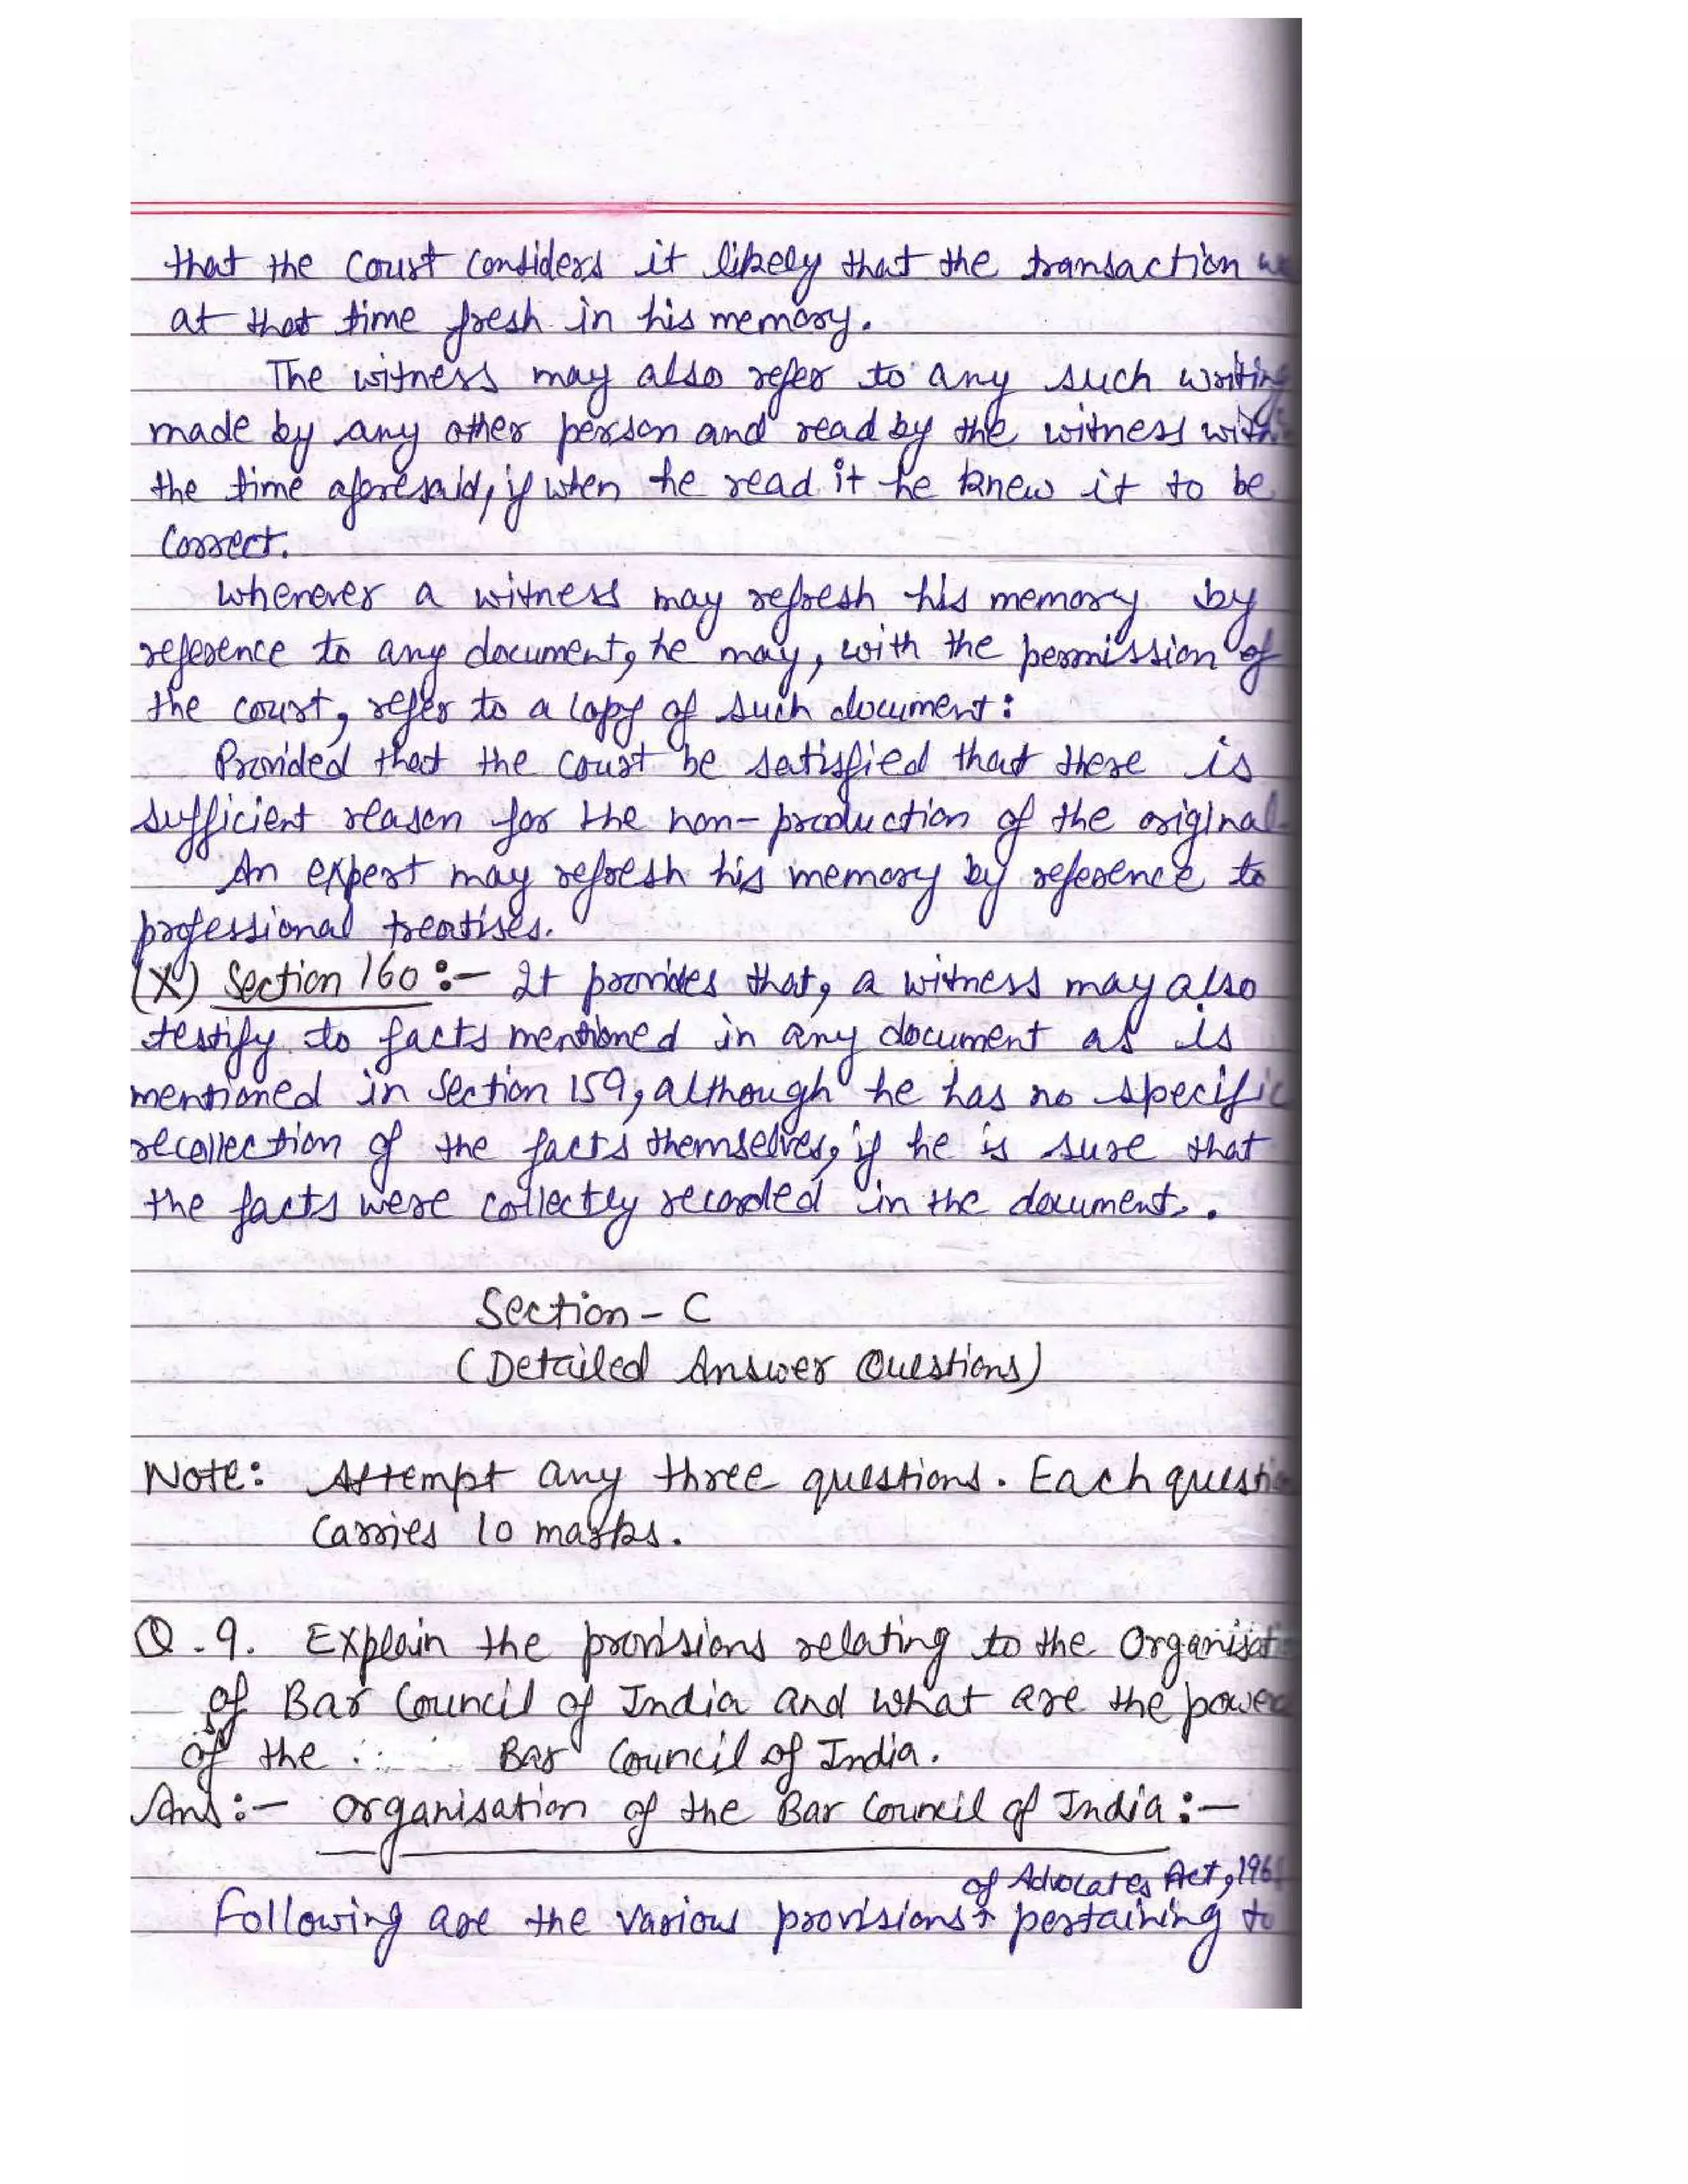 that the Court Considers it likely that the transaction
at that time fresh in his memory.
The witness may also refer to any such writing
made by any other person and read by the witness with
the time aforesaid, if when he read it he knew it to be
Correct.
Whenever a witness may refresh his memory by
reference to any document, he may, with the permission of
the court, refer to a copy of such document:
Provided that the Court be satisfied that there is
sufficient reason for the non-production of the original
An expert may refresh his memory by reference to
professional treatises.
(X) Section 160:- It provides that, a witness may also
testify to facts mentioned in any document as is
mentioned in Section 159, although he has no specific
recollection of the facts themselves, if he is sure that
the facts were collectly recorded in the document.
Section - C
(Detailed Answer Questions)
Note: Attempt any three questions. Each questi
Carries 10 marks.
Q.9. Explain the provisions relating to the Organisat
of Bar Council of India and what are the power
of the Bar Council of India.
Ans:- Organisation of the Bar Council of India:-
of Advocates Act, 196
Following are the various provisions pertaining to